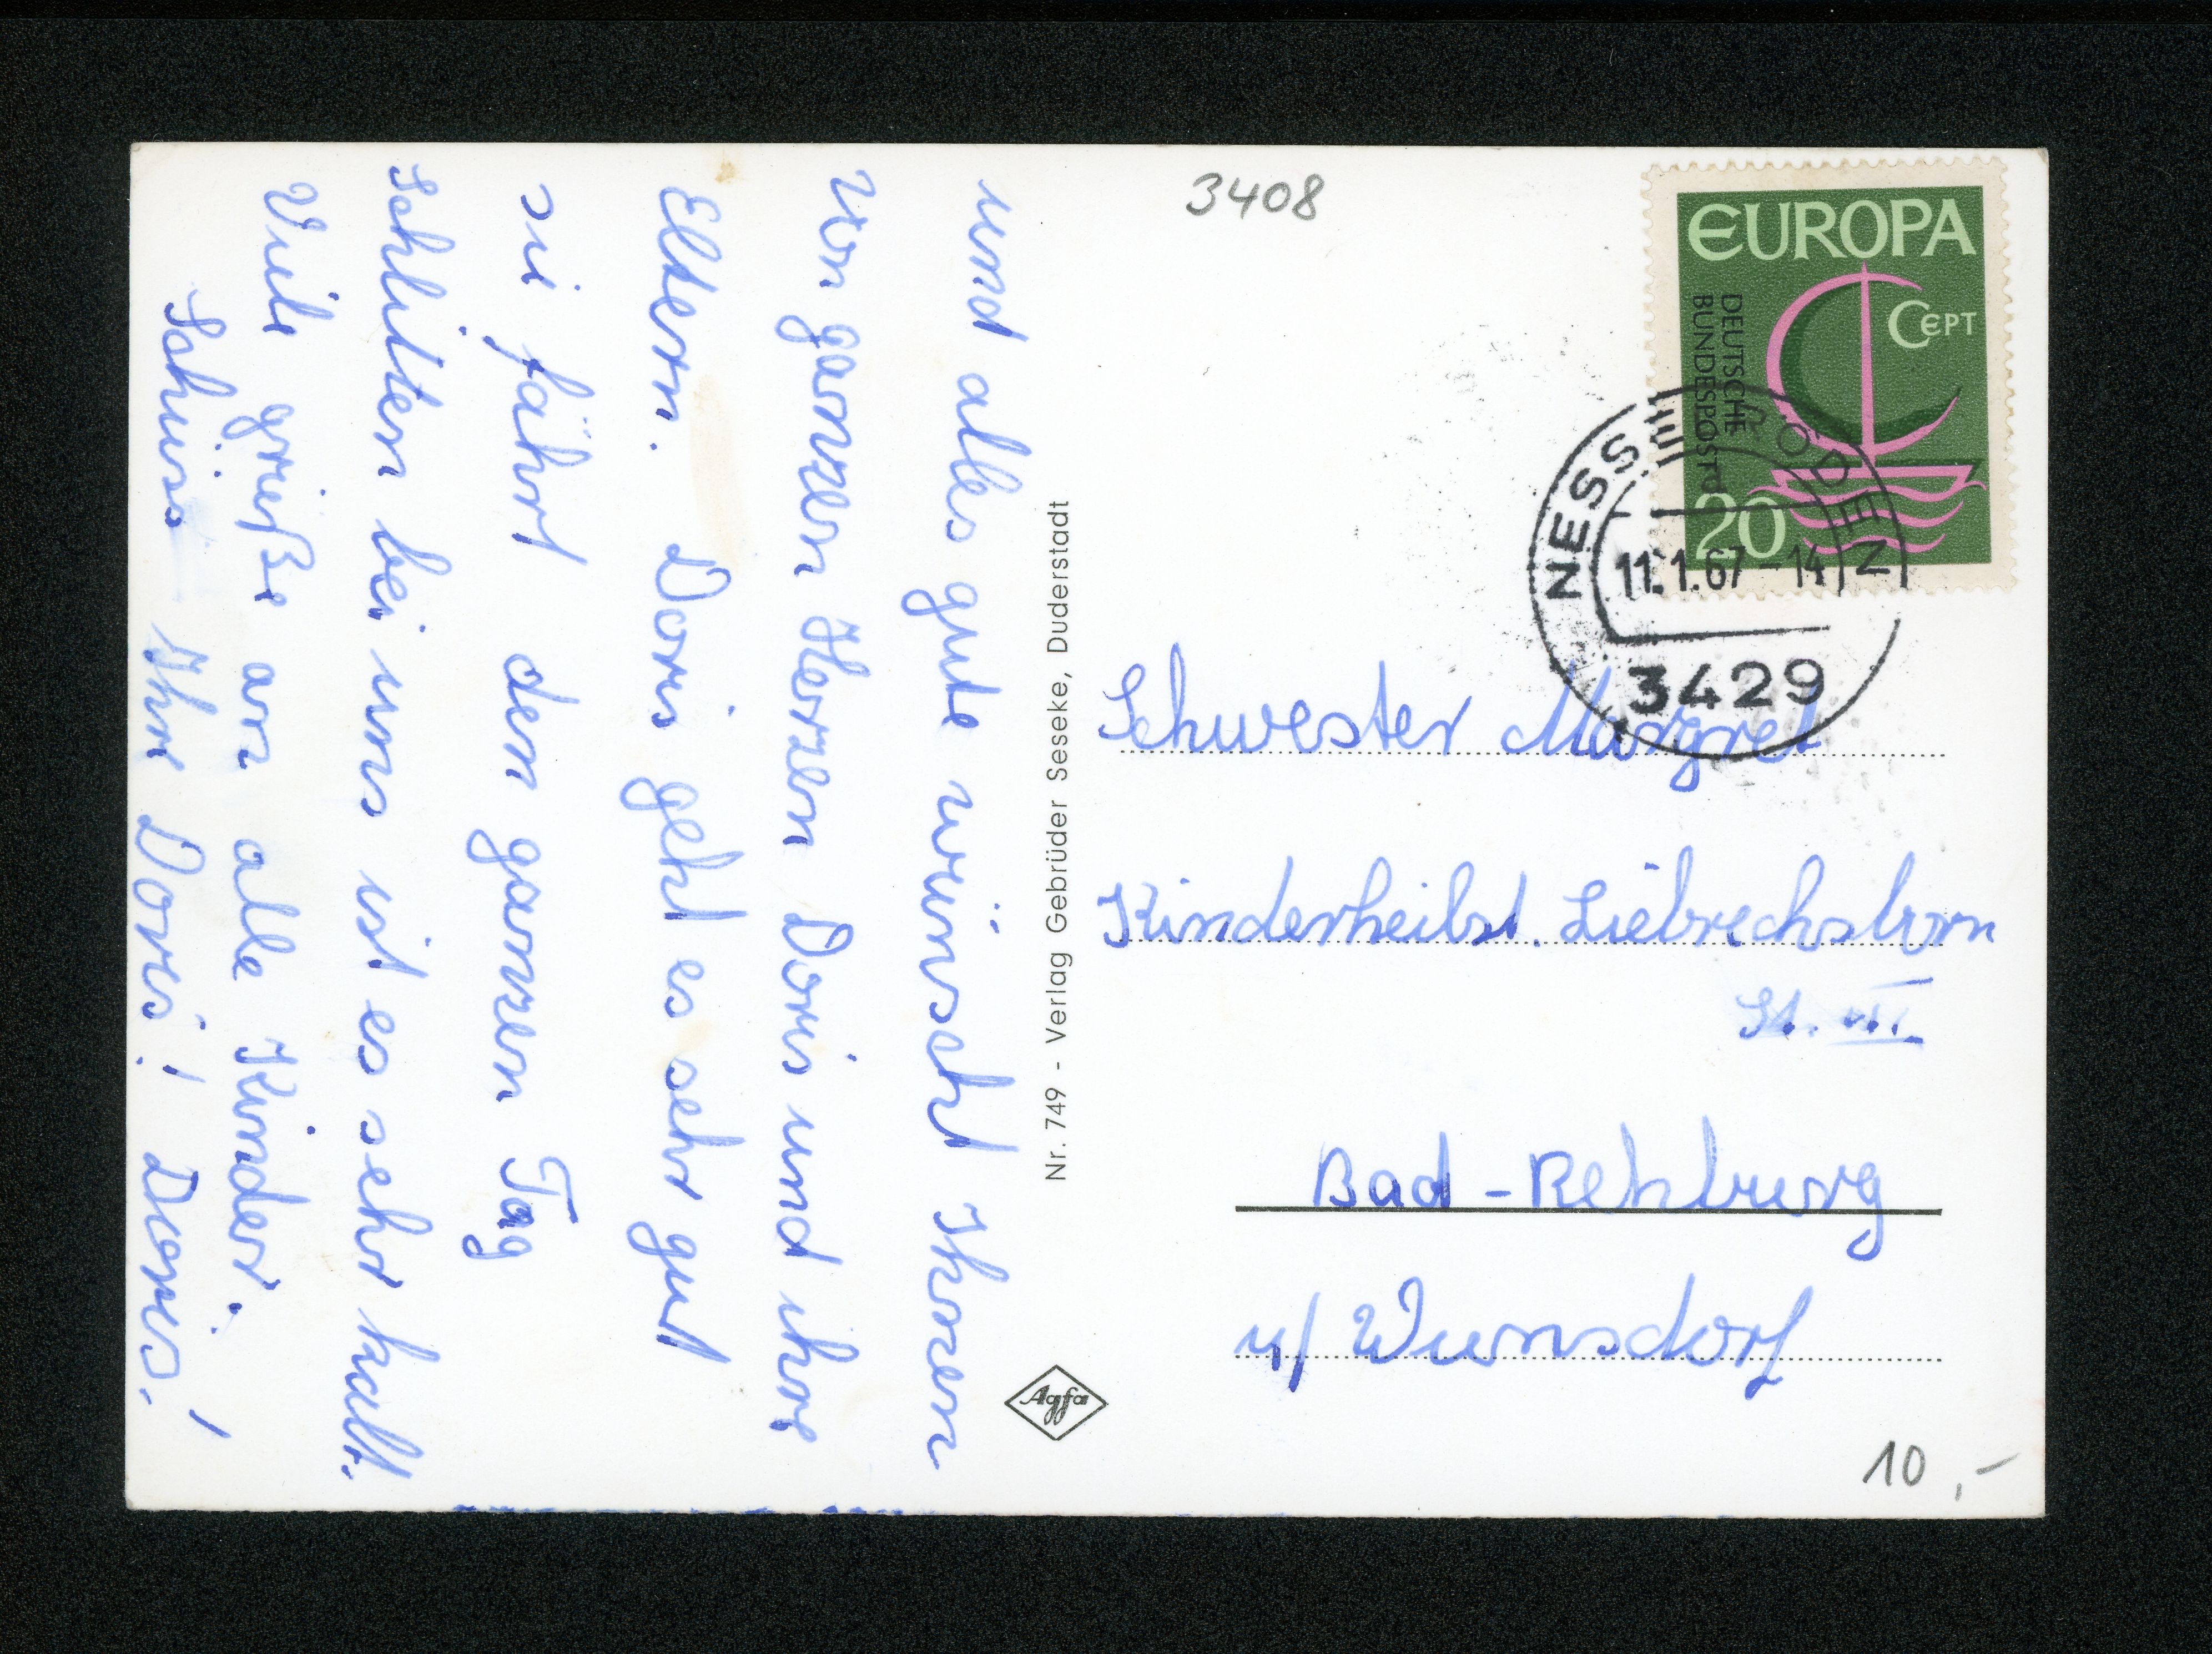 und alles gute wünscht Ihnen
von ganzen Herzen Doris und ihre
Eltern. Doris geht es sehr gut
sie fährt den ganzen Tag
Schlitten bei uns ist es sehr kalt.
Viele grieße an alle Kinder.
Schüss Ihr Doris! Doris!
Nr. 749 - Verlag Gebrüder Seseke, Duderstadt
Agfa
3408
EUROPA
CEPT
DEUTSCHE
BUNDESPOST
20
NESS
RÖDEN
11.1.67-14
3429
Schwester Margret
Kinderheilst. Liebrechstbrn
St. III
Bad-Rehburg
ü/ Wunsdorf
10,-